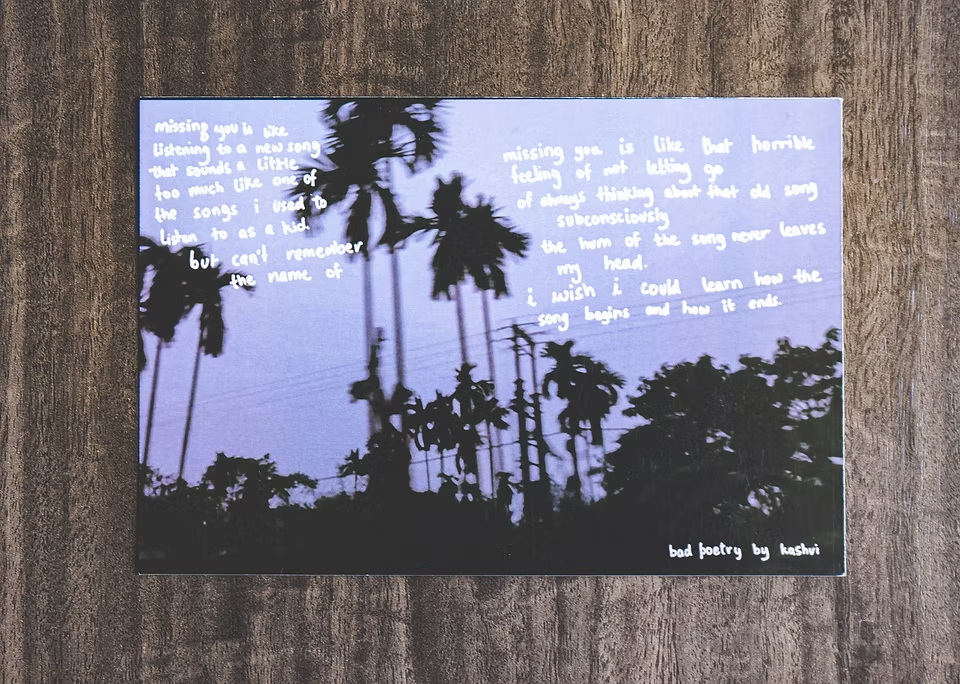 missing you is like
listening to a new song
that sounds a little
too much like one of
the songs i used to
listen to as a kid.
but can't remember
the name of
missing you is like that horrible
feeling of not letting go
of always thinking about that old song
subconsciously
the hum of the song never leaves
my head.
i wish i could learn how the
song begins and how it ends.
bad poetry by kashvi